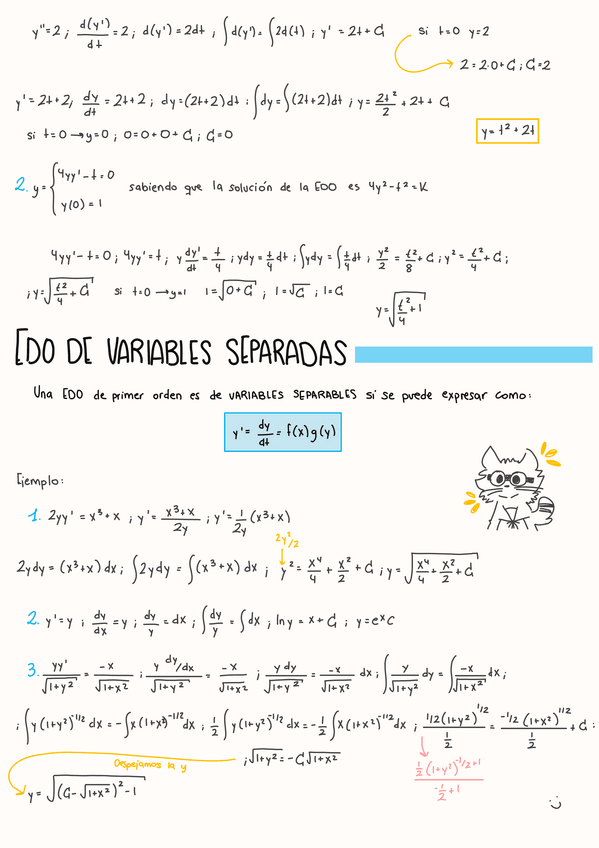 y''=2 ; d(y')/dt = 2 ; d(y') = 2dt ; ∫d(y') = ∫2d(t) ; y' = 2t + C₁ si t=0 y=2
2 = 2·0 + C₁ ; C₁=2
y' = 2t+2 ; dy/dt = 2t+2 ; dy=(2t+2)dt ; ∫dy = ∫(2t+2)dt ; y = 2t²/2 + 2t + C₁
si t=0 → y=0 ; 0=0+0+C₁ ; C₁=0
y = t² + 2t
2. y = { 4yy' - t = 0
y(0) = 1
sabiendo que la solución de la EDO es 4y² - t² = K
4yy' - t = 0 ; 4yy' = t ; y dy'/dt = t/4 ; ydy = t/4 dt ; ∫ydy = ∫t/4 dt ; y²/2 = t²/8 + C₁ ; y² = t²/4 + C₁ ;
; y = √(t²/4 + C₁) si t=0 → y=1 1 = √(0+C₁) ; 1 = √C₁ ; 1=C₁
y = √(t²/4 + 1)
EDO DE VARIABLES SEPARADAS
Una EDO de primer orden es de VARIABLES SEPARABLES si se puede expresar como:
y' = dy/dt = f(x)g(y)
Ejemplo:
1. 2yy' = x³+x ; y' = x³+x/2y ; y' = 1/2y (x³+x)
2y²/2
2ydy = (x³+x) dx ; ∫2ydy = ∫(x³+x) dx ; y² = x⁴/4 + x²/2 + C₁ ; y = √(x⁴/4 + x²/2 + C₁)
2. y' = y ; dy/dx = y ; dy/y = dx ; ∫dy/y = ∫dx ; ln y = x + C₁ ; y = eˣC
3. yy'/√(1+y²) = -x/√(1+x²) ; y dy/dx/√(1+y²) = -x/√(1+x²) ; y dy/√(1+y²) = -x/√(1+x²) dx ; ∫y/√(1+y²) dy = ∫-x/√(1+x²) dx ;
; ∫y(1+y²)^-1/2 dx = -∫x(1+x²)^-1/2 dx ; 1/2 ∫y(1+y²)^-1/2 dx = -1/2 ∫x(1+x²)^-1/2 dx ; 1/2(1+y²)^1/2 / 1/2 = -1/2(1+x²)^1/2 / 1/2 + C₁ ;
Despejamos la y
; √(1+y²) = -C₁√(1+x²)
1/2 (1+y²)^-1/2+1 / -1/2+1
y = √((C₁-√(1+x²))² - 1)